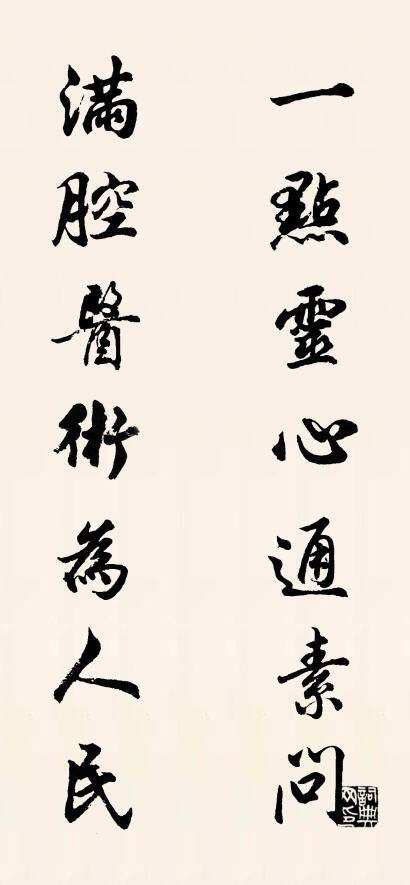 一點靈心通素問
滿腔醫術為人民
詞典